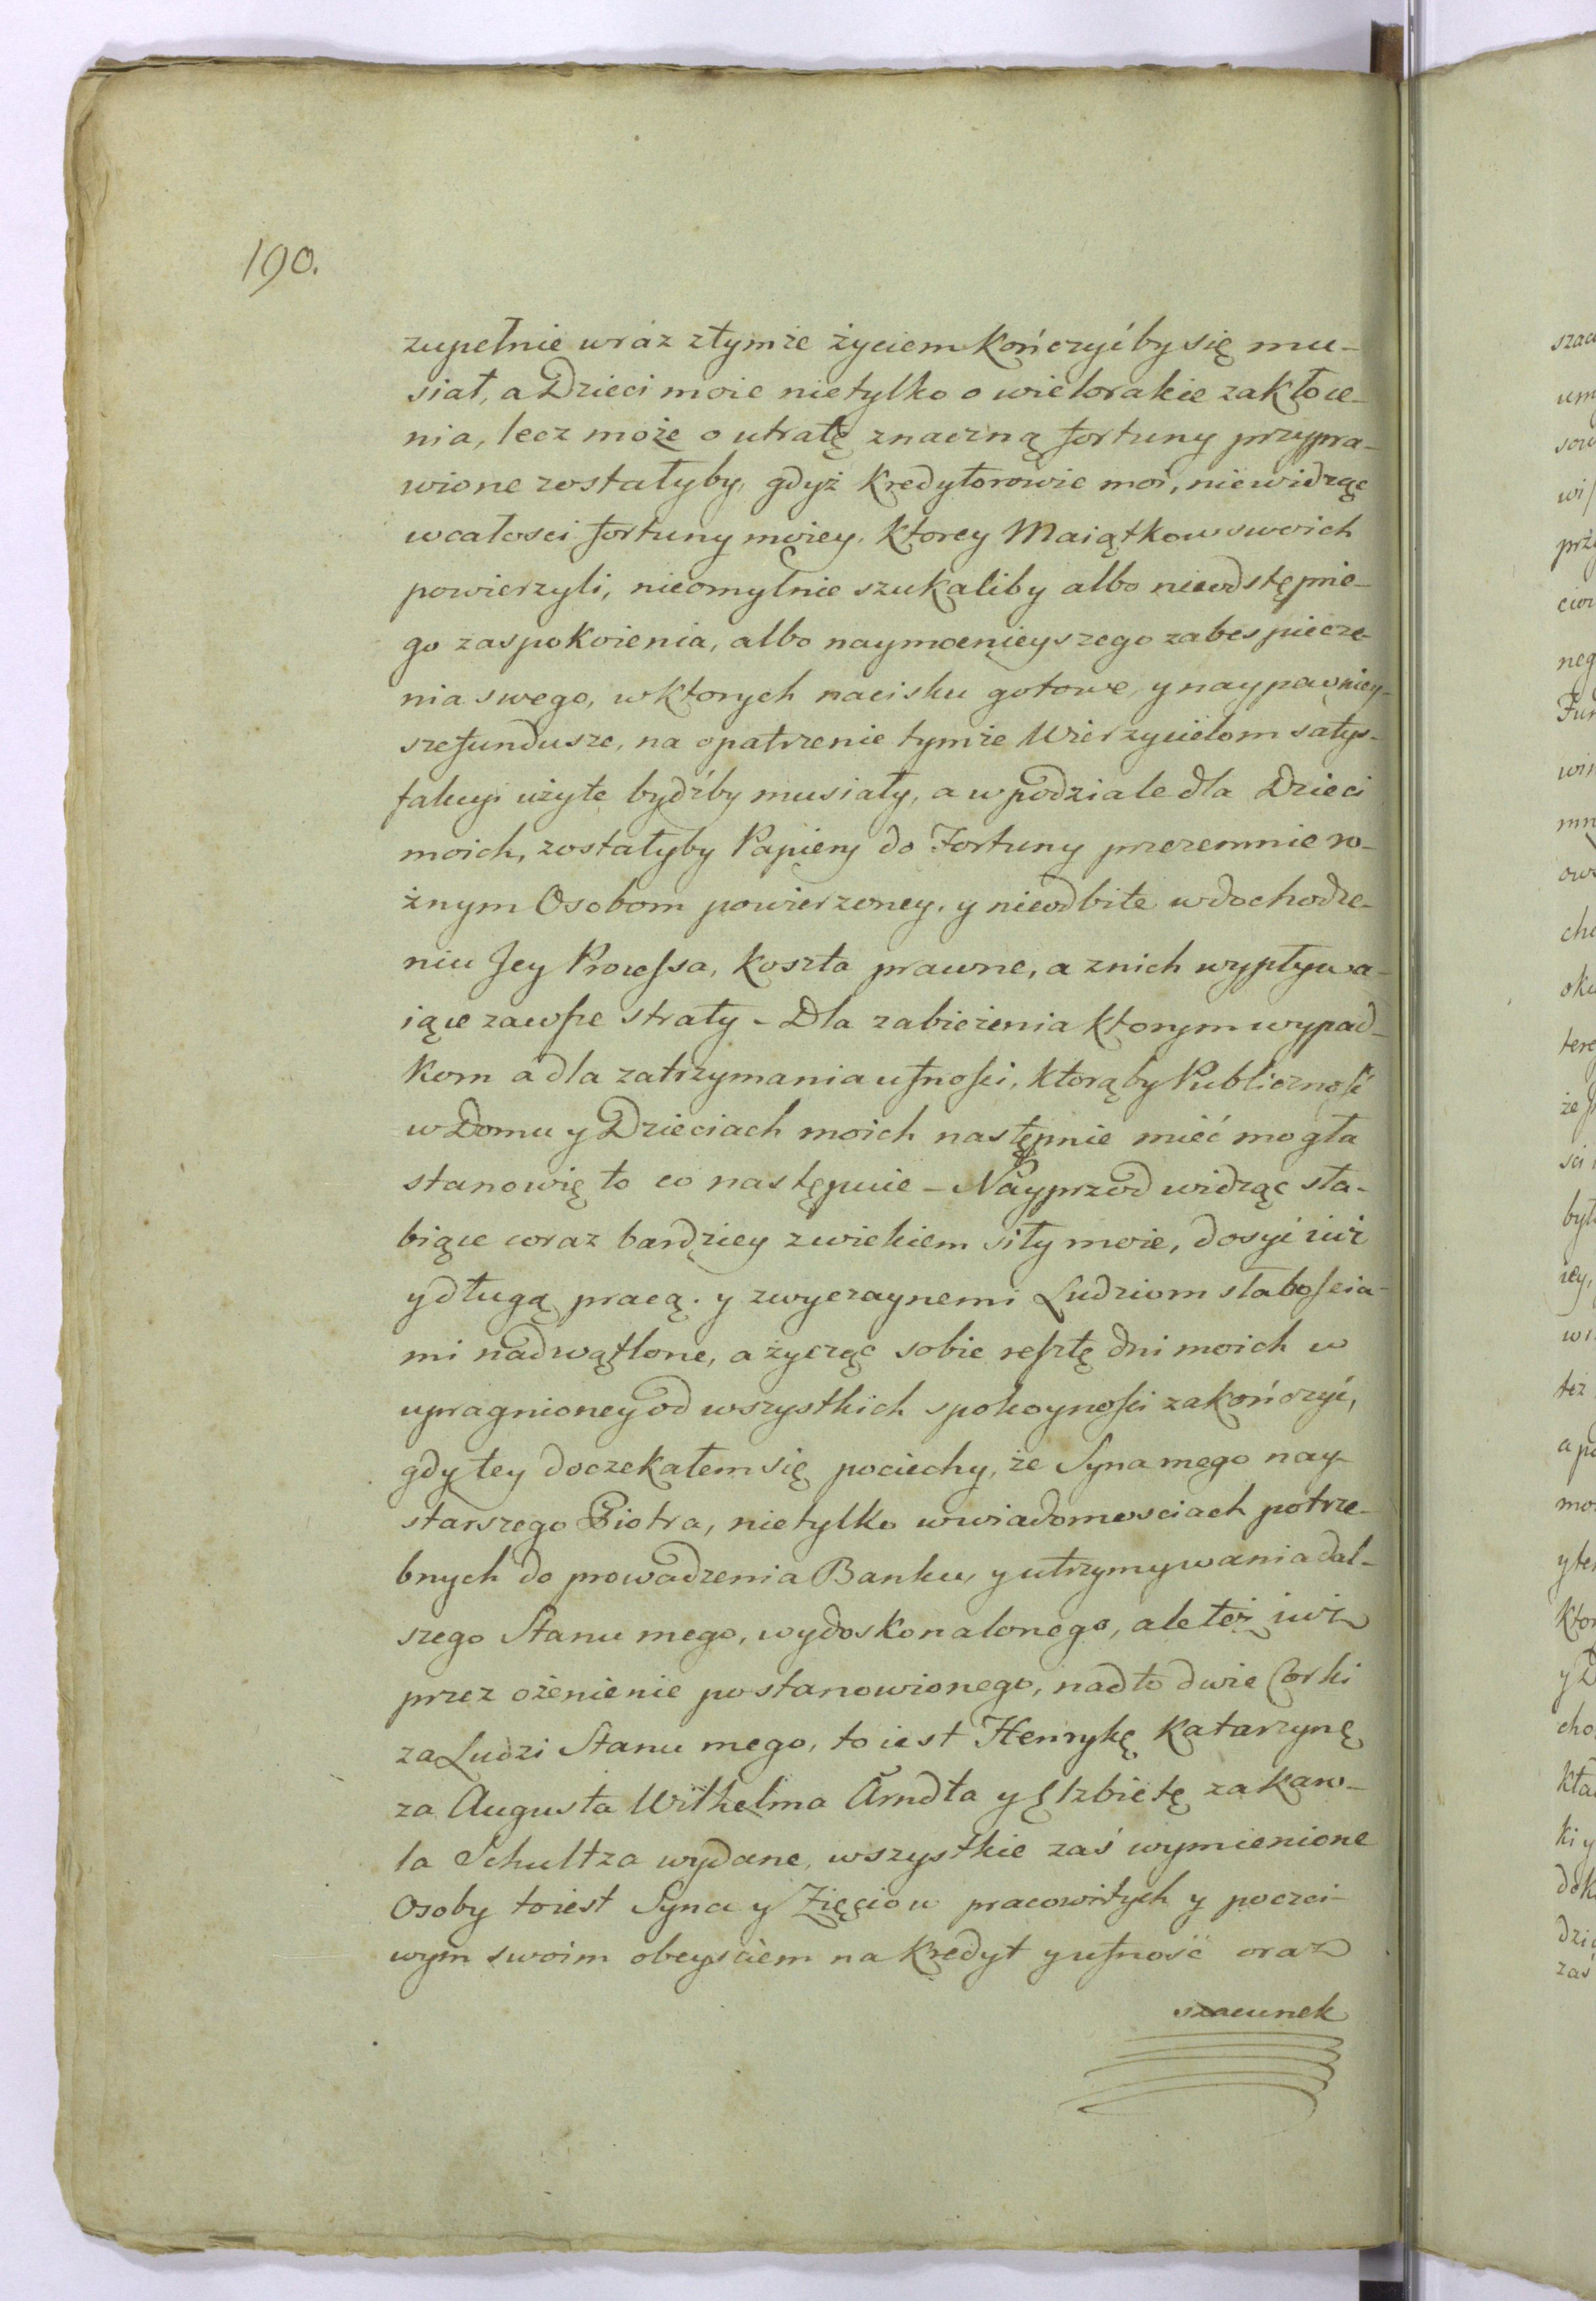 190.
zupełnie wraz ztymże życiem kończyćby się mu-
siał, a Dzieci moie nietylko o wielorakie zakłoce-
nia, lecz może o utratę znaczną fortuny przypra-
wione zostałyby, gdyż Kredytorowie moi, niewidząc
wcałosci fortuny moiey, ktorey Maiątkow swoich
powierzyli, nieomylnie szukaliby albo nieodstępne-
go zaspokoienia, albo naymocnieyszego zabespiecze-
nia swego, wktorych nacisku gotowe, y naypewniey-
szefundusze, na opatrzenie tymże Wierzycielom satys-
fakcyi użyte bydźby musiały, a w podziale dla Dzieci
moich, zostałyby Papiery do Fortuny przezemnie ro-
żnym Osobom powierzoney, y nieodbite wdochodze-
niu Jey Processa, koszta prawne, a znich wypływa-
iące zawsze straty - Dla zabieżenia ktorym wypad-
kom a dla zatrzymania ufności, ktorąby Publiczność
w Domu y Dzieciach moich następnie mieć mogła
stanowię to co następuie - Nayprzod widząc sła-
biące coraz bardziey zwiekiem siły moie, dosyć iuż
y długą pracą. y zwyczaynemi Ludziom słabościa-
mi nadwątlone, a życząc sobie resztę dni moich w
upragnioney od wszystkich spokoyności zakończyć,
gdy tey doczekałem się pociechy, że Syna mego nay-
starszego Piotra, nietylko wwiadomosciach potrze-
bnych do prowadzenia Banku, y utrzymywania dal-
szego Stanu mego, wydoskonalonego, ale też iuż
przez ożenienie postanowionego, nadto dwie Corki
za Ludzi Stanu mego, to iest Henrykę Katarzynę
za Augusta Wilhelma Arndta y Elzbietę za Karo-
la Schultza wydane, wszystkie zaś wymienione
Osoby toiest Syna y Zięciow pracowitych y poczci-
wym swoim obeysciem na kredyt y ufność oraz
szacunek